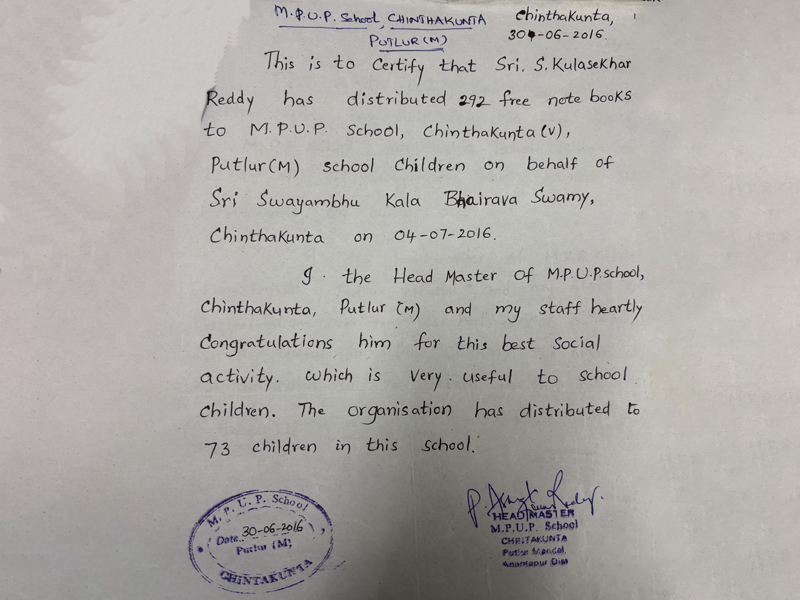 M.P.U.P. School, CHINTHAKUNTA
PUTLUR(M)
Chinthakunta,
30-06-2016.
This is to Certify that Sri. S. Kulasekhar
Reddy has distributed 292 free note books
to M.P.U.P. School, Chinthakunta(V),
Putlur(M) school Children on behalf of
Sri Swayambhu Kala Bhairava Swamy,
Chinthakunta on 04-07-2016.
I the Head Master of M.P.U.P school,
Chinthakunta, Putlur (M) and my staff heartly
Congratulations him for this best Social
activity. Which is Very useful to school
Children. The organisation has distributed to
73 children in this school.
M. P. U. P. School
Date 30-06-2016
Putlur (M)
CHINTAKUNTA
HEAD MASTER
M.P.U.P. School
CHINTAKUNTA
Putlur Mandal,
Anantapur Dist